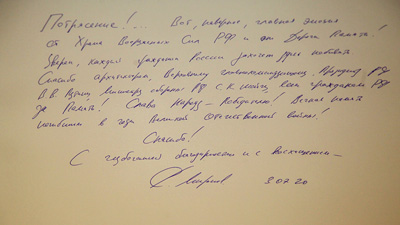 Потрясение!... Вот, наверно, главная эмоция
от Храма Вооруженных Сил РФ и от Дороги Памяти!
Уверен, каждый гражданин России захочет здесь побывать
Спасибо архитекторам, Верховному главнокомандующему, Президенту РФ
В.В. Путину, Министру обороны РФ С.К. Шойгу, всем гражданам РФ
за Память! Слава Народу - Победителю! Вечная память
погибшим в годы Великой Отечественной войны!
Спасибо!
С глубочайшей благодарностью и с восхищением -
3.07.20